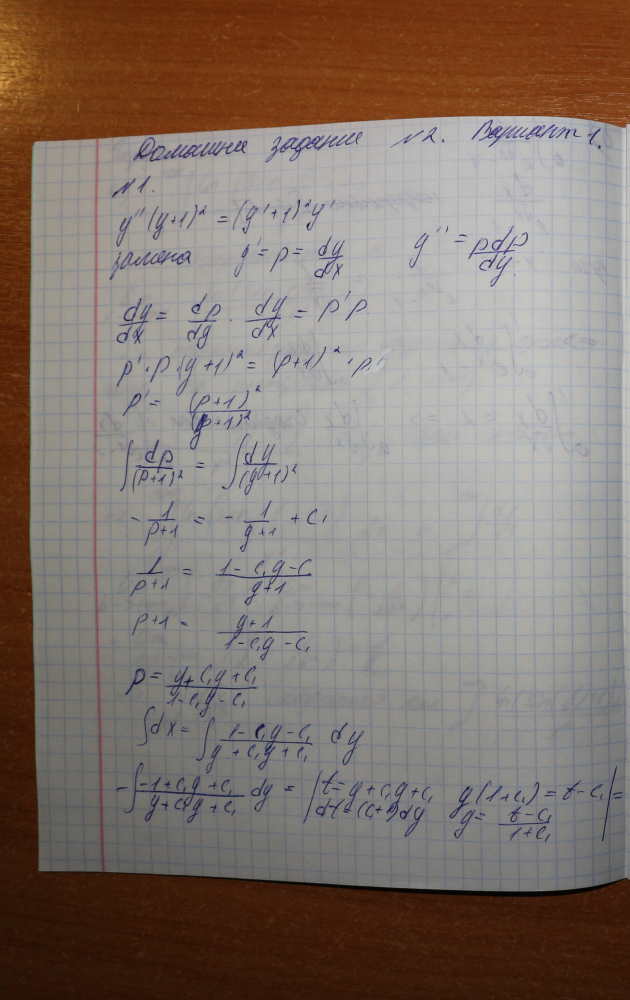 Домашнее задание №2. Вариант 1.
№1.
y''(y+1)² = (y'+1)²y'
замена y' = p = dy/dx y'' = pdp/dy.
dy/dx = dp/dy · dy/dx = p'p
p'·p·(y+1)² = (p+1)²·p
p' = (p+1)²/(y+1)²
∫dp/(p+1)² = ∫dy/(y+1)²
-1/(p+1) = -1/(y+1) + C₁
1/(p+1) = (1-C₁y-C)/(y+1)
p+1 = (y+1)/(1-C₁y-C₁)
p = (y+C₁y+C₁)/(1-C₁y-C₁)
∫dx = ∫(1-C₁y-C₁)/(y+C₁y+C₁) dy
-∫(-1+C₁y+C₁)/(y+C₁y+C₁) dy = | t=y+C₁y+C₁ y(1+C₁)=t-C₁ | =
dt=(C₁+1)dy y=(t-C₁)/(1+C₁)